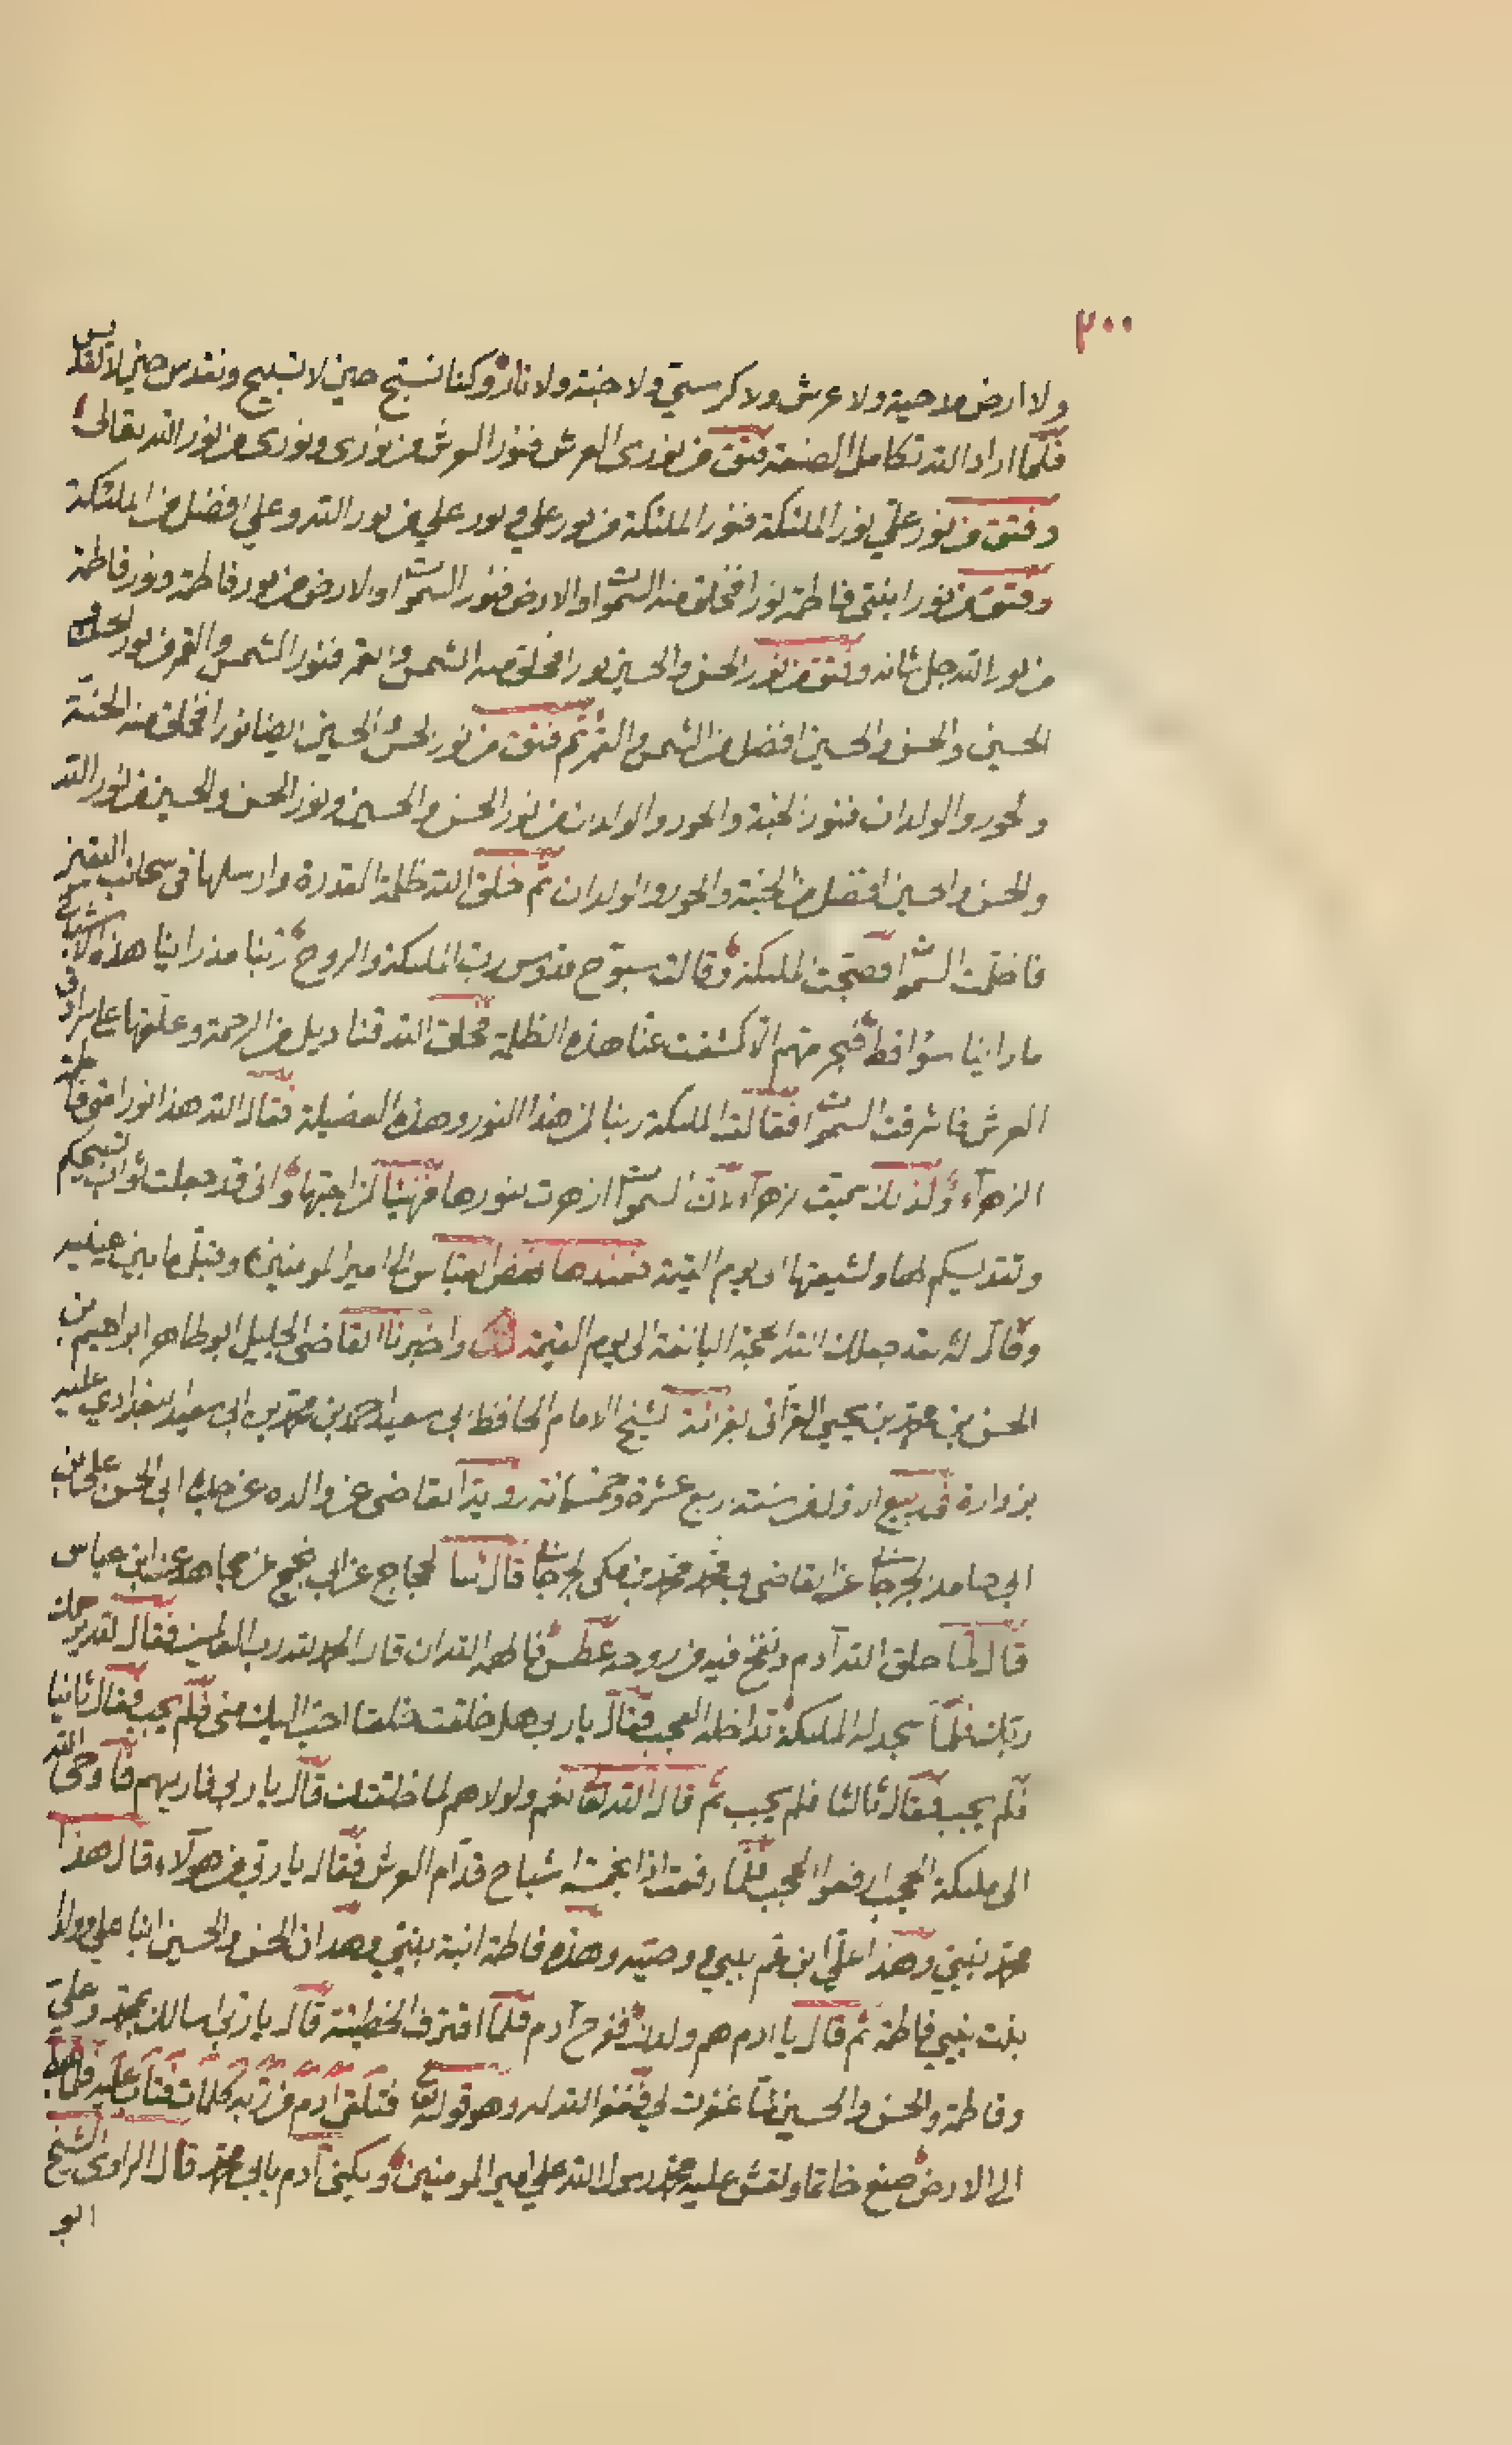 ٣٠٠
ولا ارض ولا حية ولا عرش ولا كرسي ولا جنة ولا نار وكنا نسبح حين لا تسبيح ونقدس حين لا تقديس
فلما اراد الله تكامل الصنعة فتق من نوري العرش فنور العرش من نوري ونوري من نور الله تعالى
وفتق من نور علي نور الملئكة فنور الملئكة من نور علي ونور علي من نور الله وعلي افضل من الملئكة
وفتق من نور ابنتي فاطمة نورا فخلق منه السموات والارض فنور السموات والارض من نور فاطمة ونور فاطمة
من نور الله جل شانه وفتق من نور الحسن والحسين نورا فخلق منه الشمس والقمر فنور الشمس والقمر من نور الحسن و
الحسين والحسن والحسين افضل من الشمس والقمر ثم فتق من نور الحسن والحسين ايضا نورا فخلق منه الجنة
والحور والولدان فنور الجنة والحور والولدان من نور الحسن والحسين ونور الحسن والحسين من نور الله
والحسن والحسين افضل من الجنة والحور والولدان ثم خلق الله ظلمة القدرة وارسلها في سحائب
فاظلمت السموات فضجت الملئكة وقالت سبوح قدوس رب الملئكة والروح ربنا مذ راينا هذه الاشباح
ما راينا سوءا قط فبحرمتهم الا كشفت عنا هذه الظلمة فخلق الله قناديل من الرحمة وعلقها على سرادق
العرش فاشرقت السموات فقالت الملئكة ربنا لمن هذا النور وهذه الفضيلة فقال الله هذا نور امتي فاطمة
الزهرآء ولذلك سميت زهرآء لان السموات ازهرت بنورها فهنيئا لمن احبها واني قد جعلت ثواب تسبيحكم
وتقديسكم لها ولشيعتها الى يوم القيمة فعندها نهض العباس الى امير المومنين وقبل ما بين عينيه
وقال له لقد جعلك الله الحجة البالغة الى يوم القيمة واخبرنا القاضي الجليل ابو طاهر ابراهيم بن
الحسن بن محمد بن يحيى القرآني بقرائة الشيخ الامام الحافظ ابي سعيد احمد بن محمد بن ابي سعيد البغدادي عليه
بزوارة في ربيع الاول من سنة اربع عشرة وخمسمائة رواية القاضي عن والده عن جده ابي الحسن علي بن
ابي حامد الجرجاني عن القاضي محمد بن مكي الجرجاني قال ثنا الحجاج عن ابي نجيح عن مجاهد عن ابن عباس
قال لما خلق الله آدم ونفخ فيه من روحه عطس فالهمه الله ان قال الحمد لله رب العالمين فقال له ربه يرحمك
ربك فلما سجد له الملئكة تداخله العجب فقال يا رب هل خلقت خلقا احب اليك مني فلم يجب فقال ثانيا
فلم يجب فقال ثالثا فلم يجب ثم قال الله تعالى نعم ولولاهم لما خلقتك قال يا رب فاريهم فاوحى الله
الى ملئكة الحجب ارفعوا الحجب فلما رفعت اذا بخمسة اشباح قدآم العرش فقال يا رب من هولآء قال هذا
محمد نبيي وهذا علي ابن عم نبيي ووصيه وهذه فاطمة ابنة نبيي وهذان الحسن والحسين ابنا علي وولدا
بنت نبيي فاطمة ثم قال يا ادم هم ولدك ففرح آدم فلما اقترف الخطيئة قال يا رب اسالك بمحمد وعلي
وفاطمة والحسن والحسين لما غفرت لي فغفر الله له وهو قوله تعالى فتلقى آدم من ربه كلمات فتاب عليه فلما هبط
الى الارض صنع خاتما ونقش عليه محمد رسول الله علي امير المومنين ويكنى آدم بابي محمد قال الراوي الشيخ
ابو